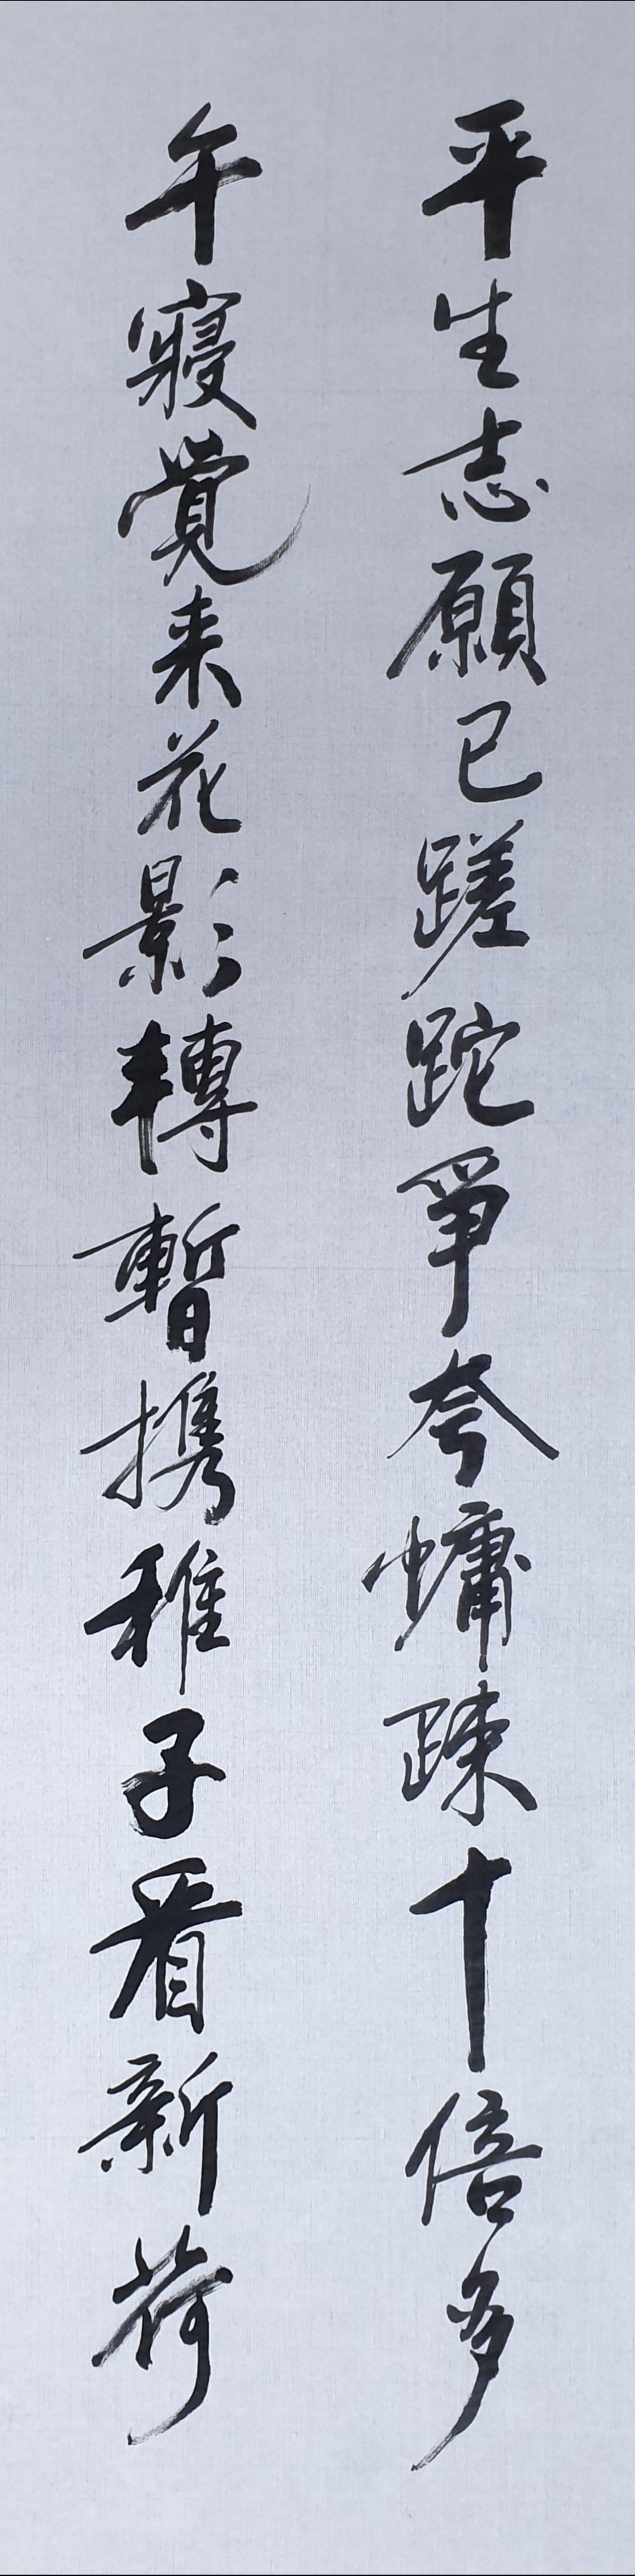 平生志願已蹉跎爭夸慵踈十倍多
午寢覺来花影轉暫携稚子看新荷